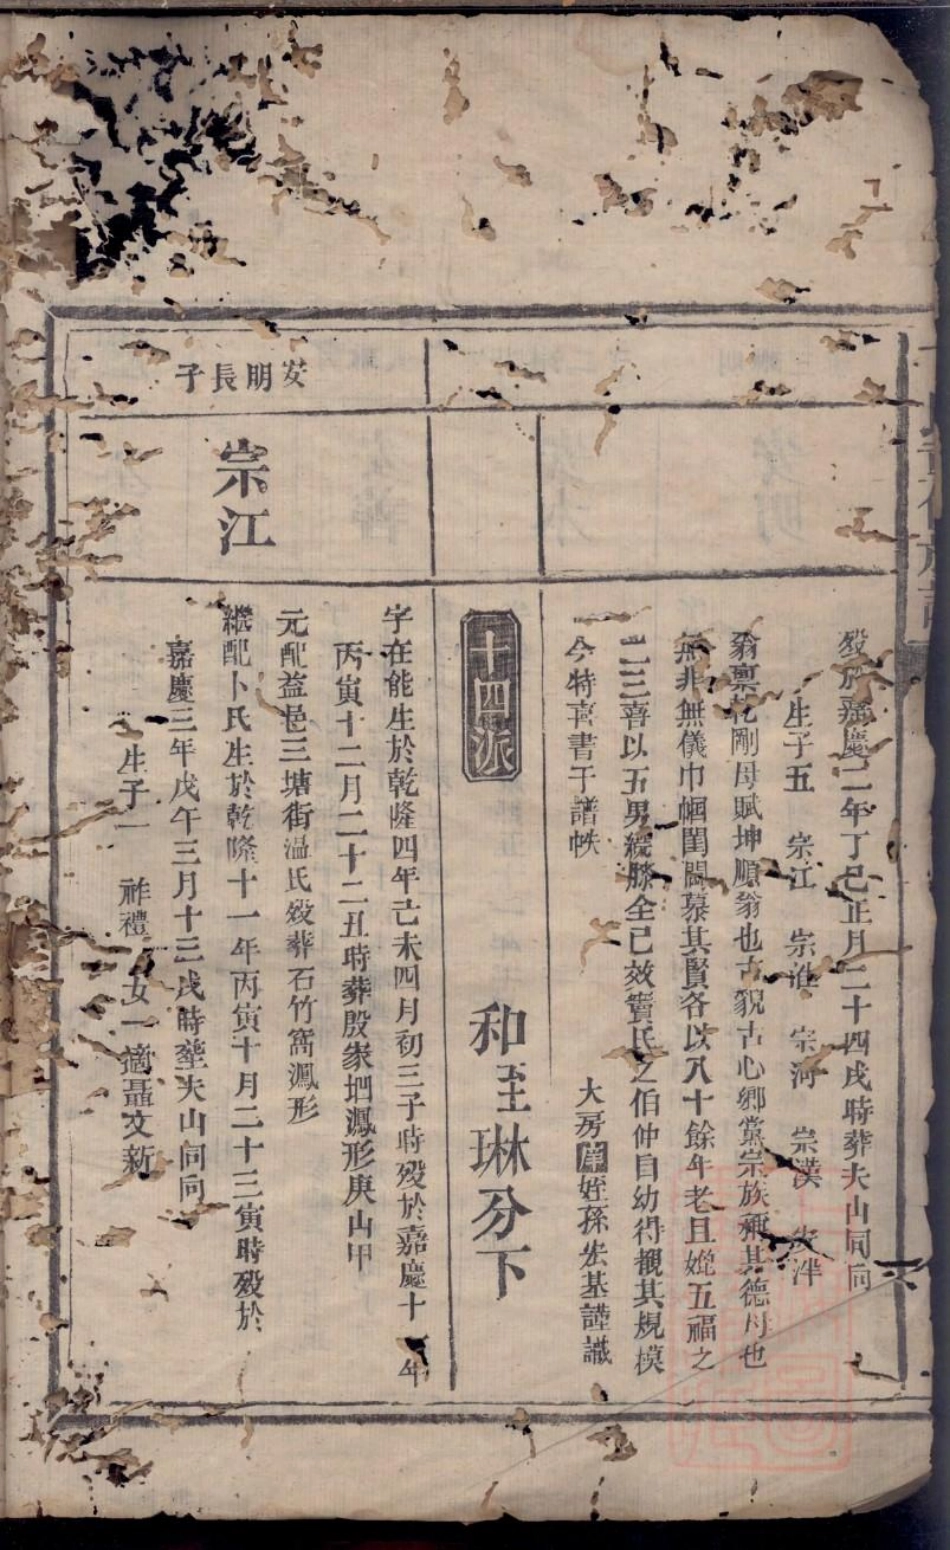 歿於嘉慶二年丁巳正月二十四戌時葬夫山同向
生子五 宗江 宗淮 宗河 宗漢 宗泮
翁稟乾剛母賦坤順翁也古貌古心鄉黨宗族稱其德母也
無非無儀巾幗閨閫慕其賢各以八十餘年老且媲五福之
一二三喜以五男繞膝全已效竇氏之伯仲自幼得覩其規模
今特喜書于譜帙
大房庠姪孫宏基謹識
十四派
和至琳分下
安明長子
宗江
字在能生於乾隆四年己未四月初三子時歿於嘉慶十 年
丙寅十二月二十二丑時葬殷家坦鳳形庚山甲
元配益邑三塘街溫氏歿葬石竹窩鳳形
繼配卜氏生於乾隆十一年丙寅十月二十三寅時歿於
嘉慶三年戊午三月十三戌時塟夫山同向
生子一 祚禮 女一適聶文新